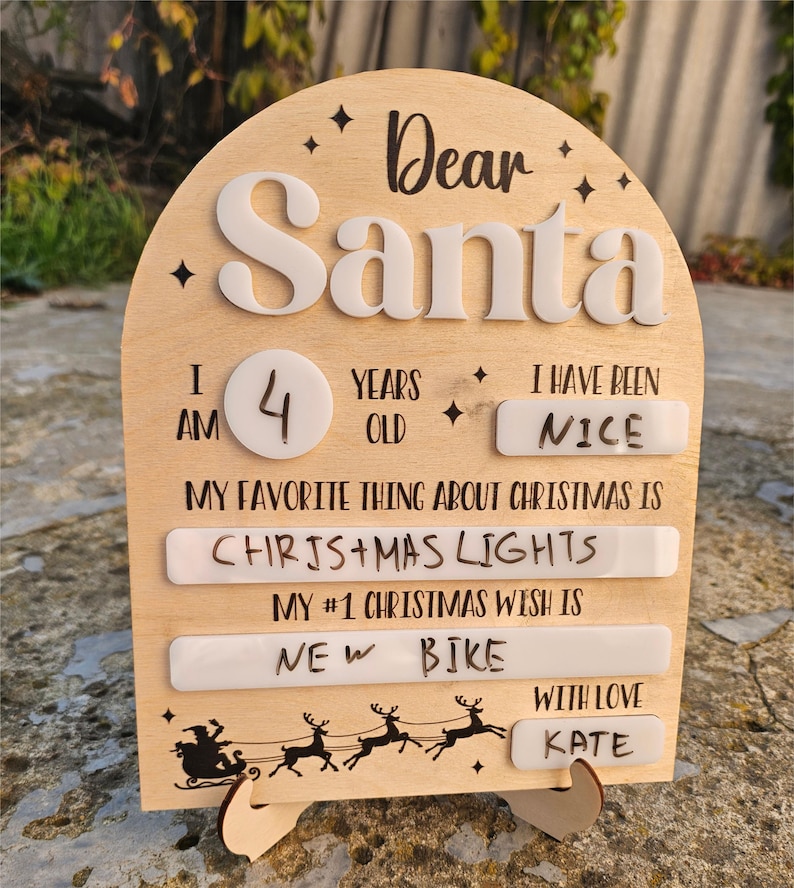 Dear
Santa
I AM 4 YEARS OLD
I HAVE BEEN
NICE
MY FAVORITE THING ABOUT CHRISTMAS IS
CHRIStMAS LIGHTS
MY #1 CHRISTMAS WISH IS
NEW BIKE
WITH LOVE
KATE